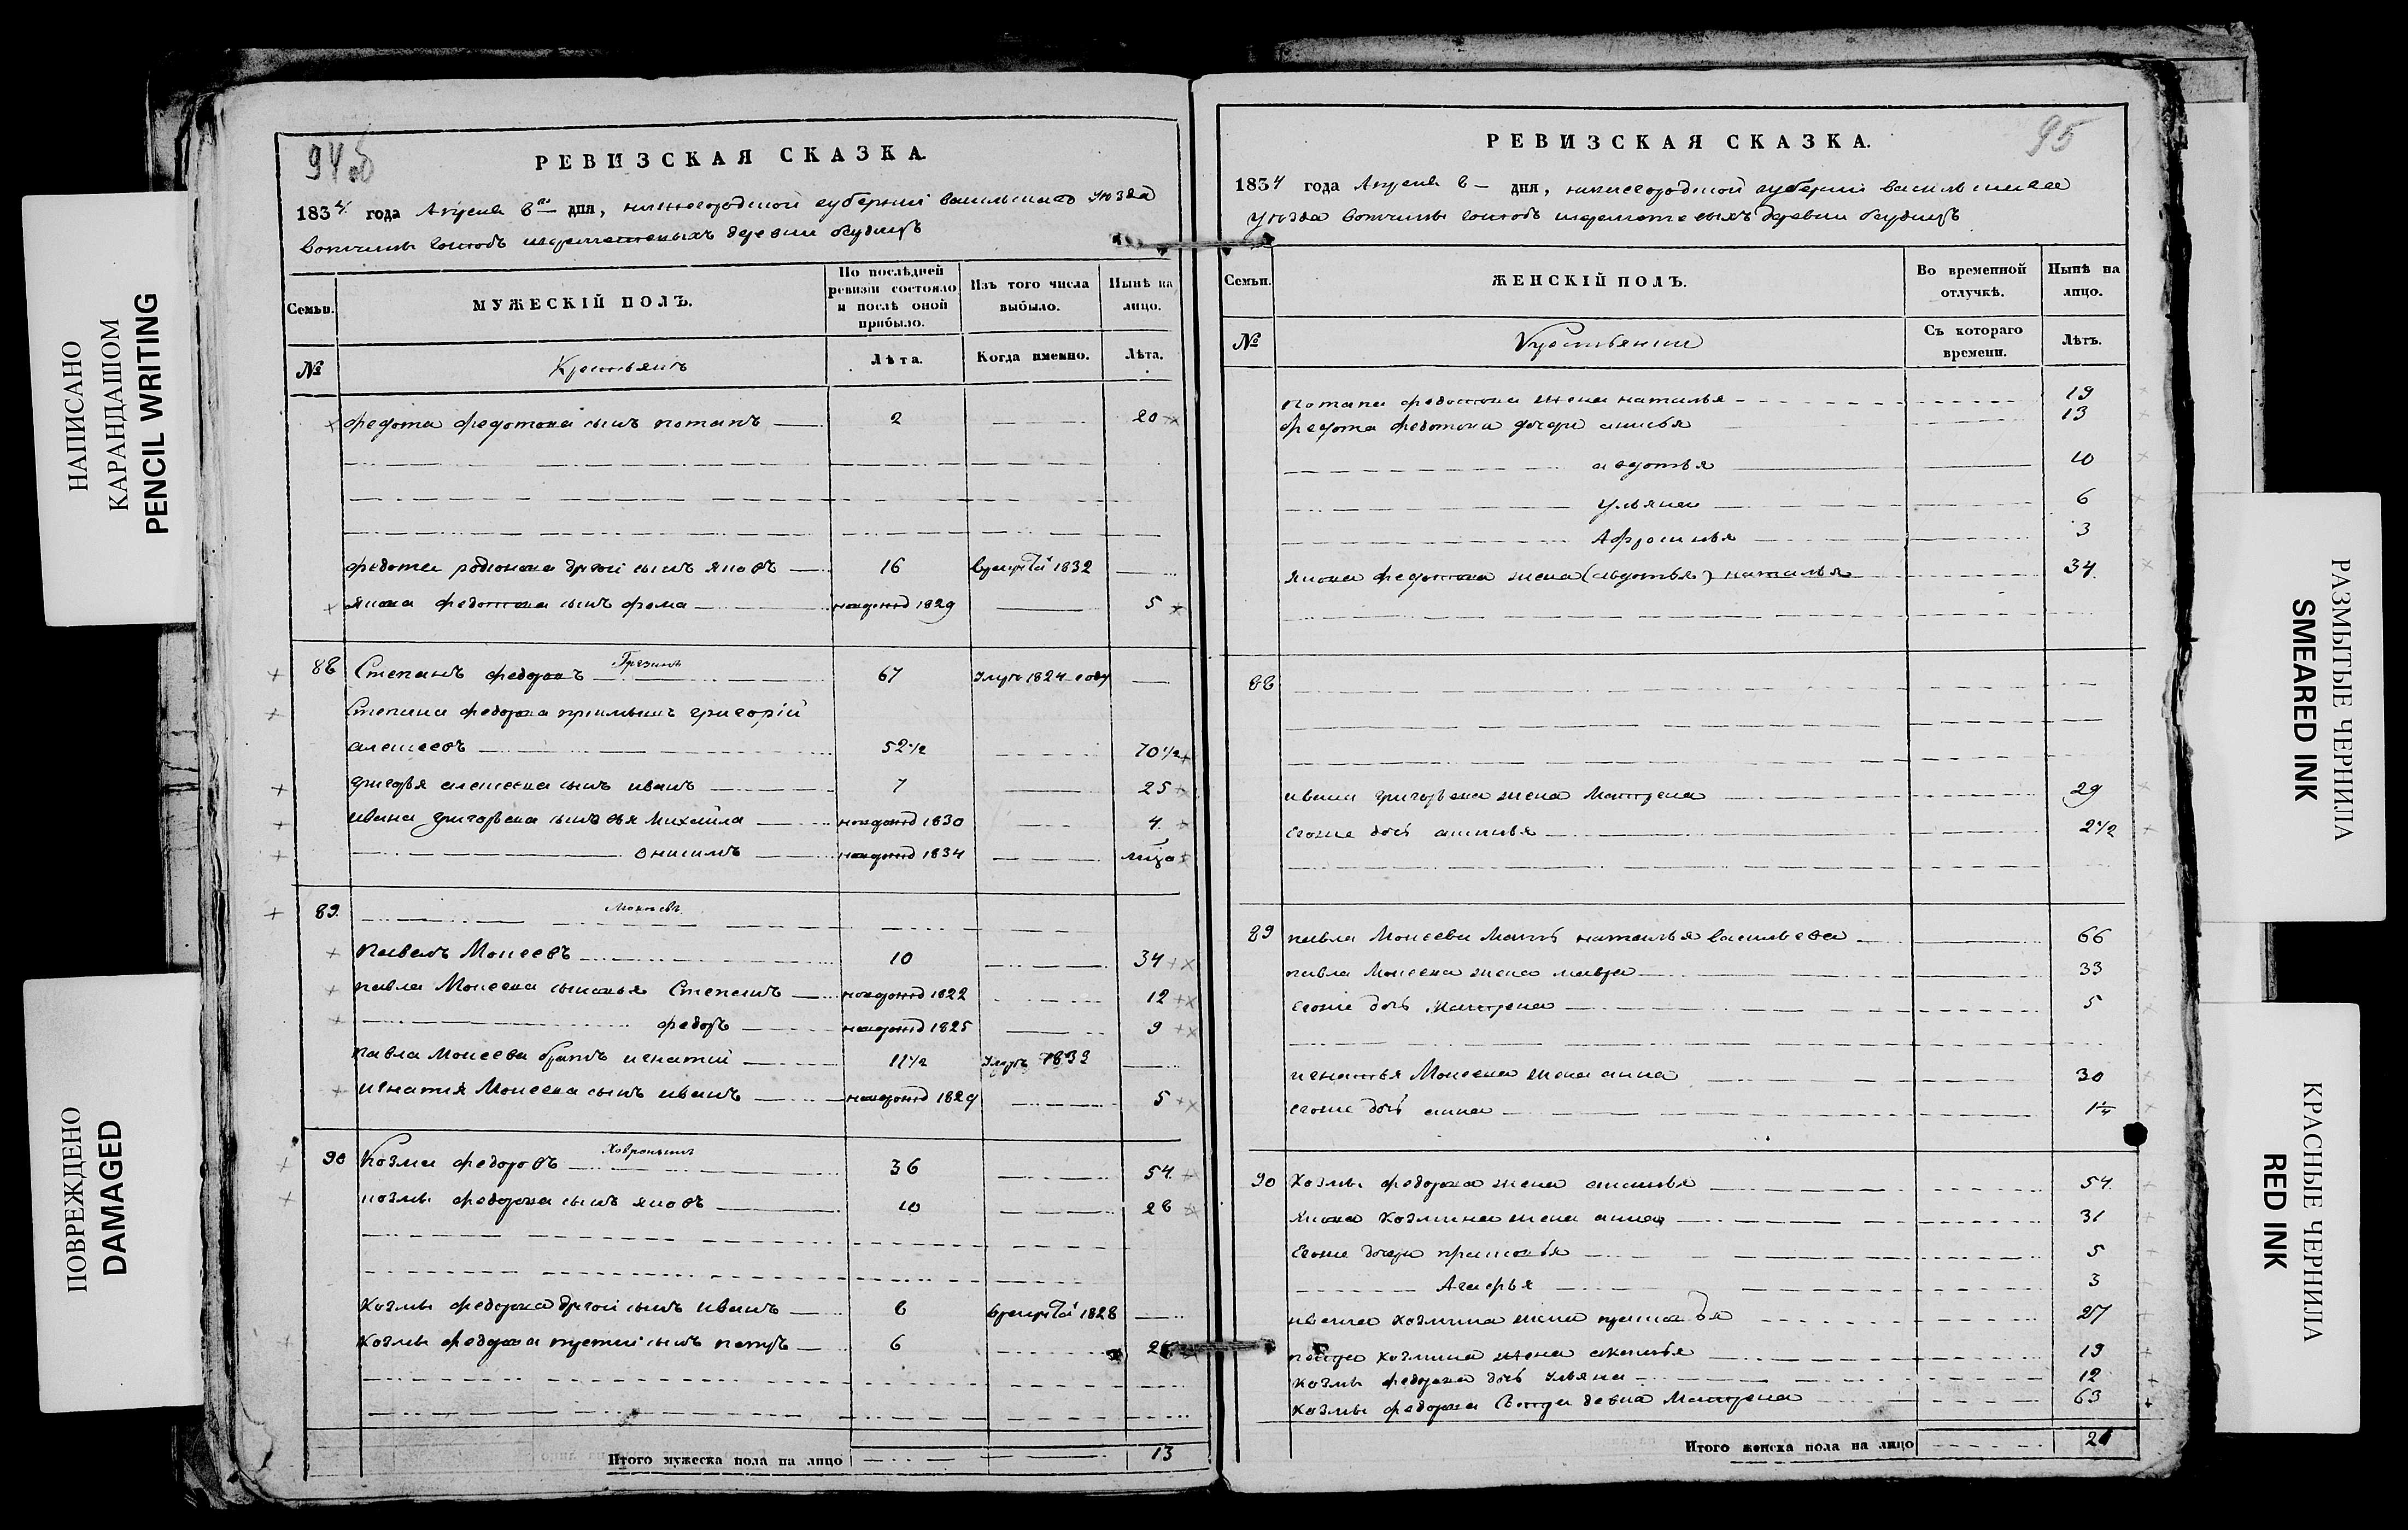 НАПИСАНО
КАРАНДАШОМ
PENCIL WRITING
ПОВРЕЖДЕНО
DAMAGED
94об
РЕВИЗСКАЯ СКАЗКА.
1834 года Апреля 8го дня, нижегородской губернии васильскаго уезда
вотчины шереметевыхъ деревни
Семьи.
МУЖЕСКІЙ ПОЛЪ.
По послѣдней ревизіи состояло и послѣ оной прибыло.
Изъ того числа выбыло.
Нынѣ на лицо.
№
Крестьянъ
Лѣта.
Когда именно.
Лѣта.
федота федотова сынъ потапъ 2 20
федота родионова другой сынъ яковъ 16 врекруты 1832
якова федотова сынъ фома новорожд 1829 5
88 Степанъ федоровъ Грязинъ 67 умре 1824 году
Степана федорова приимышъ григорій
алексеевъ 52 1/2 70 1/2
григорья алексеева сынъ иванъ 7 25
ивана григорьева сыновья михайла новорожд 1830 4
онисимъ новорожд 1834
89. Мокеевъ
павелъ Моисеевъ 10 34
павла Моисеева сыновья Степанъ новорожд 1822 12
федоръ новорожд 1825 9
павла Моисеева братъ игнатий 11 1/2 умре 1833
игнатия Моисеева сынъ иванъ новорожд 1829 5
90 Козма федоровъ Ховронинъ 36 54
козмы федорова сынъ яковъ 10 28
козмы федорова другой сынъ иванъ 8 врекруты 1828
козмы федорова третий сынъ петръ 6
Итого мужеска пола на лицо 13
95
РЕВИЗСКАЯ СКАЗКА.
1834 года Апреля 8 дня, нижегородской губернии васильскаго
уезда вотчины шереметевыхъ деревни
Семьи.
ЖЕНСКІЙ ПОЛЪ.
Во временной отлучкѣ.
Нынѣ на лицо.
№
Крестьянки
Съ котораго времени.
Лѣтъ.
потапа федотова жена наталья 19
федота федотова дочери анисья 13
авдотья 10
ульяна 6
Афросинья 3
якова федотова жена (авдотья) наталья 34
88
ивана григорьева жена Матрена 29
егоже дочь 2 1/2
89 павла Моисеева мать наталья васильева 66
павла Моисеева жена мавра 33
егоже дочь Матрена 5
игнатья Моисеева жена анна 30
егоже дочь анна 1 1/4
90 Козмы федорова жена анисья 54
якова Козмина жена анна 31
егоже дочери прасковья 5
Агафья 3
ивана козмина жена прасковья 27
петра козмина жена 19
козмы федорова дочь ульяна 12
козмы федорова Матрена 63
Итого женска пола на лицо 21
РАЗМЫТЫЕ ЧЕРНИЛА
SMEARED INK
КРАСНЫЕ ЧЕРНИЛА
RED INK